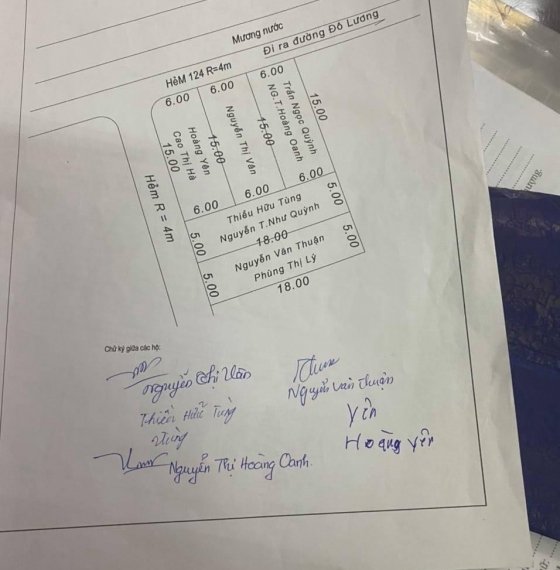 Mương nước
Đi ra đường Đô Lương
HẻM 124 R=4m
6.00
6.00
6.00
Hoàng Yên
Cao Thị Hà
15.00
15.00
Nguyễn Thị Vân
15.00
Trần Ngọc Quỳnh
NG.T.Hoàng Oanh
15.00
6.00
6.00
6.00
Hẻm R = 4m
Thiều Hữu Tùng
Nguyễn T.Như Quỳnh
5.00
5.00
18.00
Nguyễn Văn Thuận
Phùng Thị Lý
5.00
5.00
18.00
Chữ ký giữa các hộ:
Nguyễn Thị Vân
Thiều Hữu Tùng
Tùng
Nguyễn Thị Hoàng Oanh.
Nguyễn Văn Thuận
Yên
Hoàng Yên
ượng.